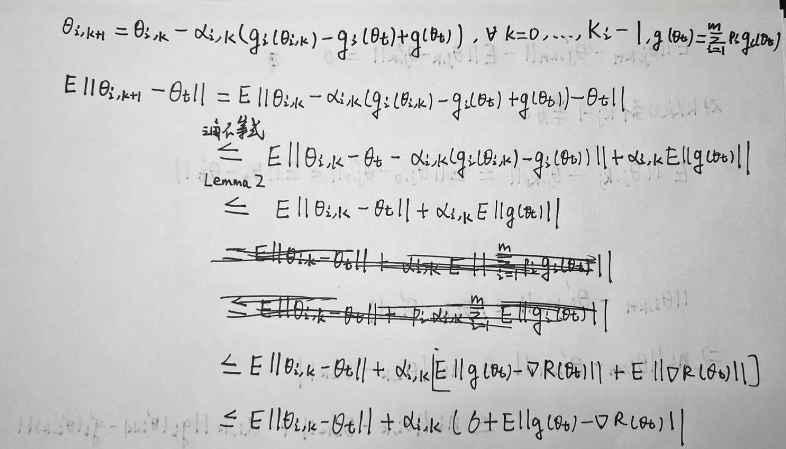 θ_{i,k+1} = θ_{i,k} − α_{i,k}(g_i(θ_{i,k}) − g_i(θ_t) + g(θ_t)), ∀ k=0,...,K_i−1, g(θ_t) = Σ_{i=1}^{m} p_i g_i(θ_t)
E||θ_{i,k+1} − θ_t|| = E||θ_{i,k} − α_{i,k}(g_i(θ_{i,k}) − g_i(θ_t) + g(θ_t)) − θ_t||
不等式
≤ E||θ_{i,k} − θ_t − α_{i,k}(g_i(θ_{i,k}) − g_i(θ_t))|| + α_{i,k} E||g(θ_t)||
Lemma 2
≤ E||θ_{i,k} − θ_t|| + α_{i,k} E||g(θ_t)||
= E||θ_{i,k} − θ_t|| + α_{i,k} E||Σ_{i=1}^{m} p_i g_i(θ_t)||
≤ E||θ_{i,k} − θ_t|| + p_i α_{i,k} Σ_{i=1}^{m} E||g_i(θ_t)||
≤ E||θ_{i,k} − θ_t|| + α_{i,k}[E||g(θ_t) − ∇R(θ_t)|| + E||∇R(θ_t)||]
≤ E||θ_{i,k} − θ_t|| + α_{i,k}(6 + E||g(θ_t) − ∇R(θ_t)||